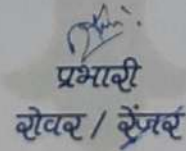 प्रभारी
रोवर / रेंजर